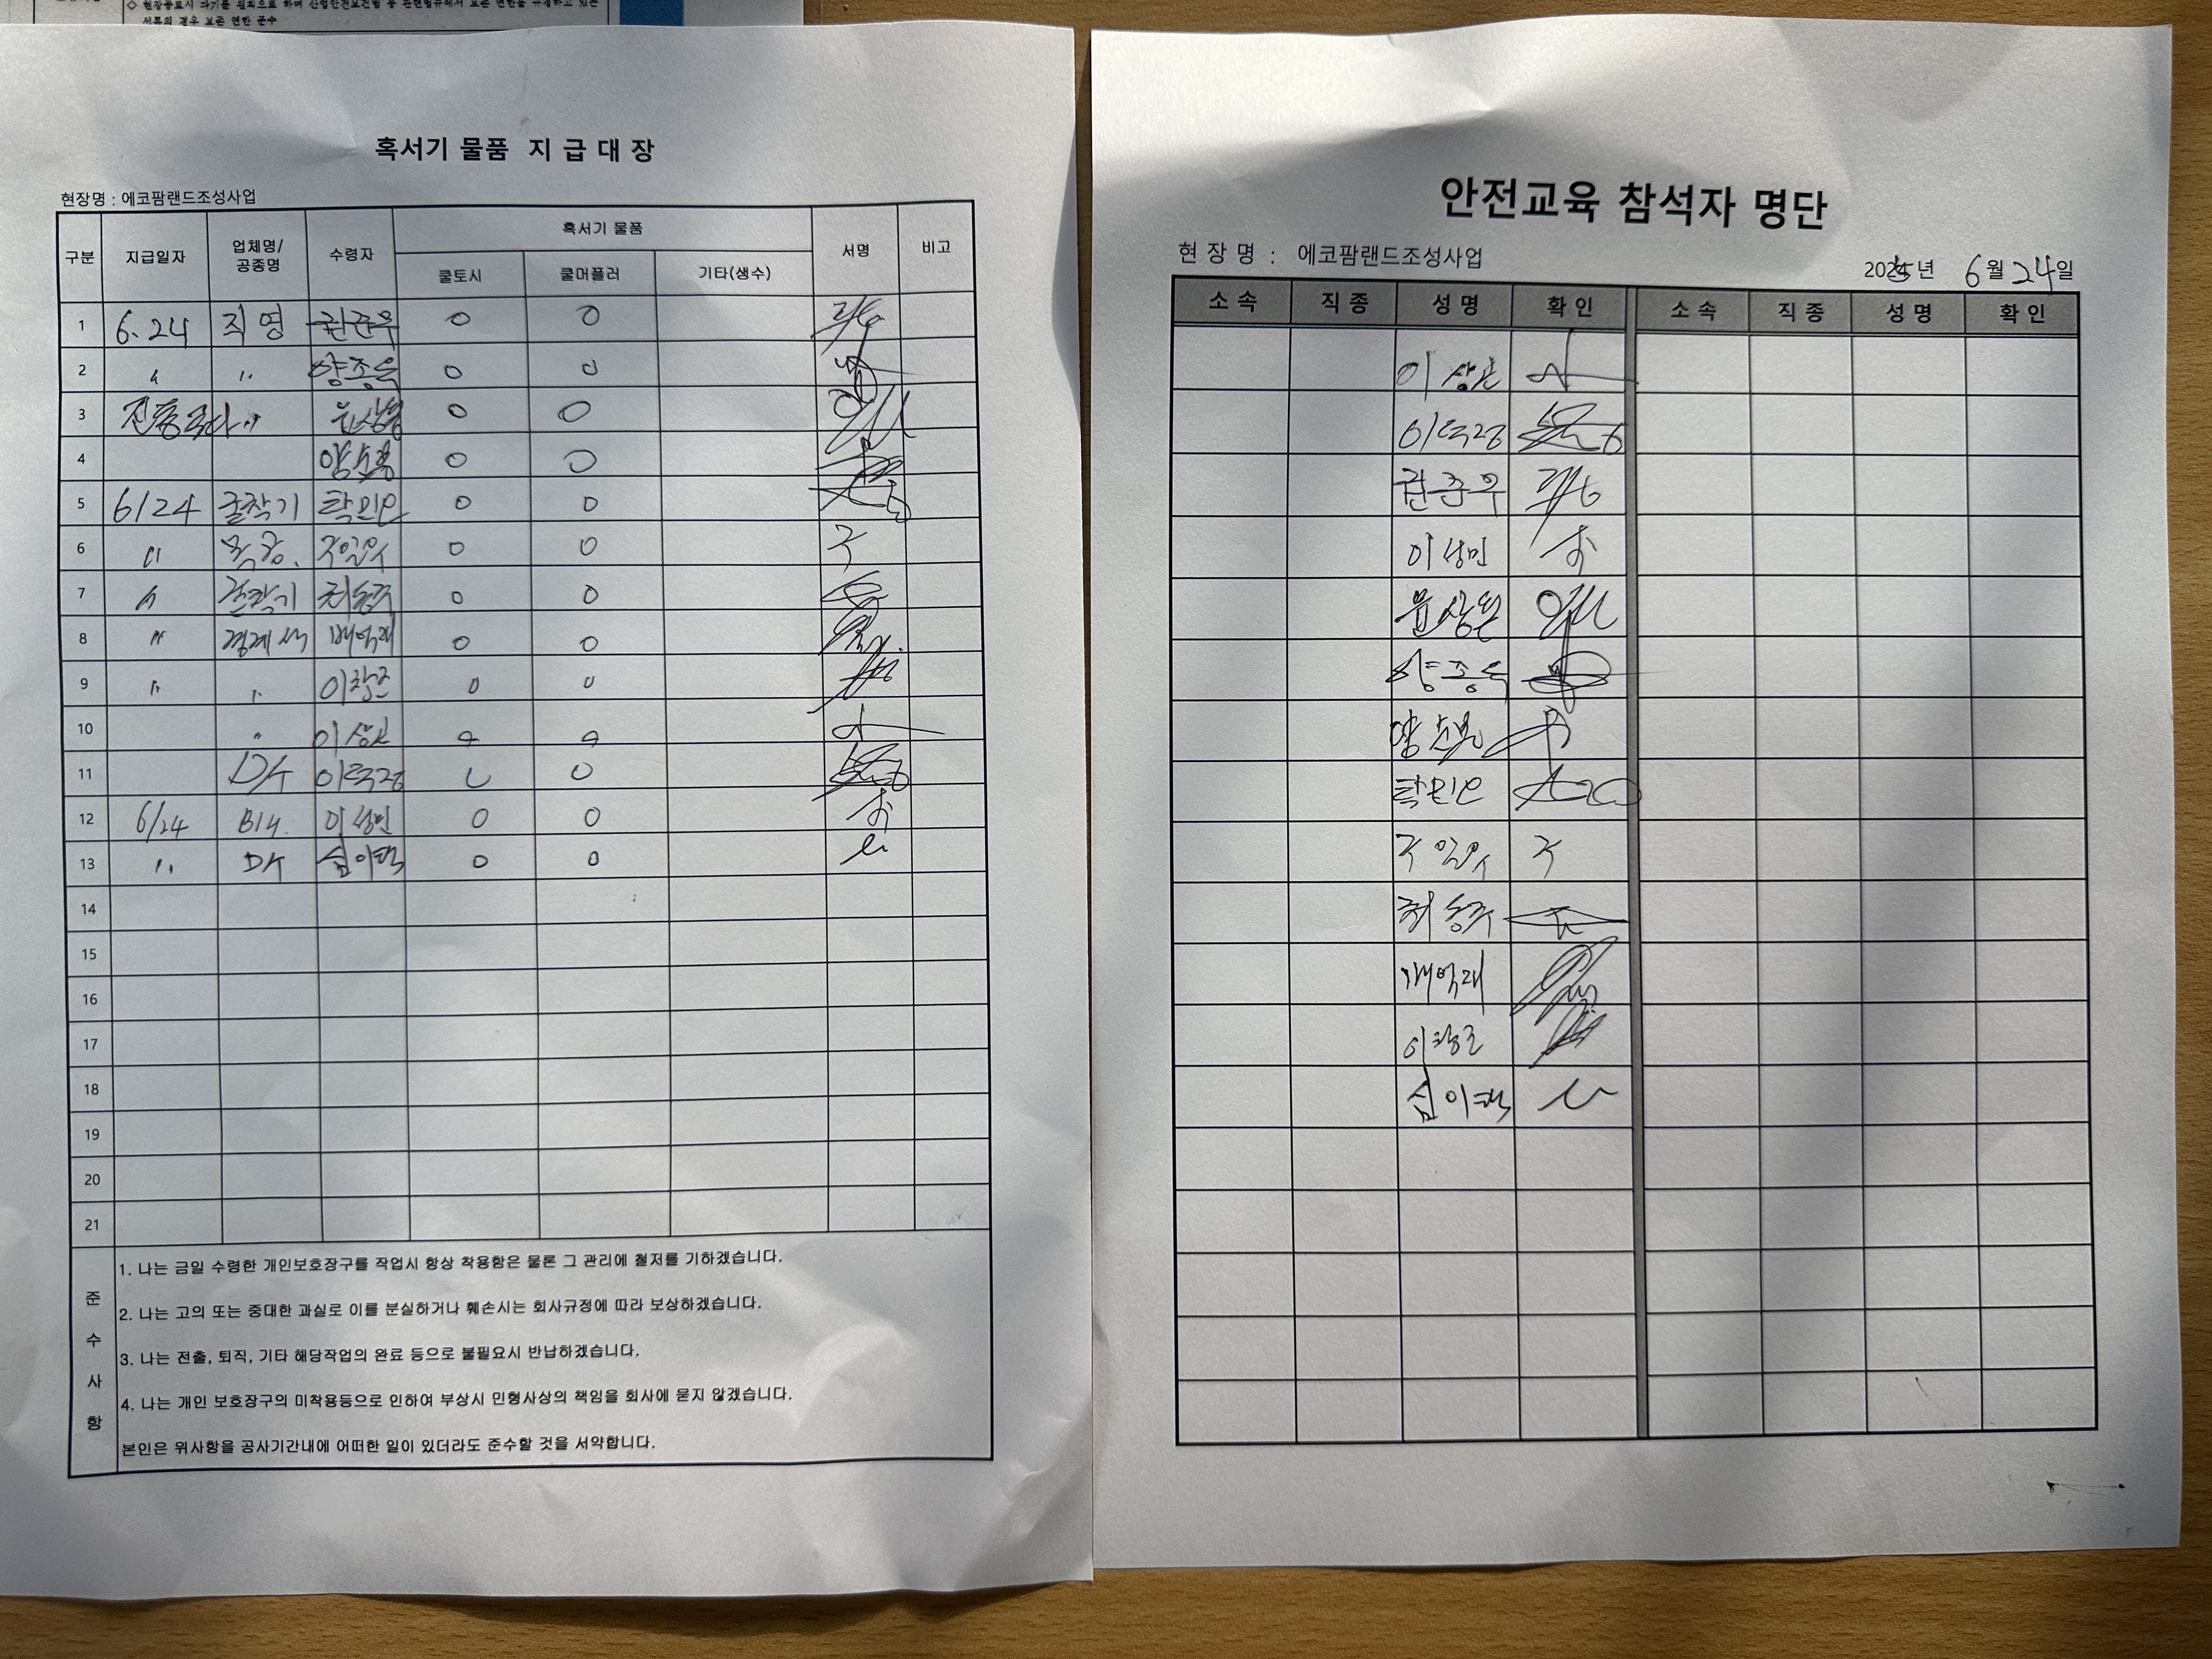 ◇ 현장종료시 파기를 원칙으로 하며 산업안전보건법 등 관련법규에서 보존 연한을 규정하고 있는
서류의 경우 보존 연한 준수
혹서기 물품 지 급 대 장
현장명 : 에코팜랜드조성사업
구분 지급일자 업체명/공종명 수령자 혹서기 물품 서명 비고
쿨토시 쿨머플러 기타(생수)
1 6.24 직영 권준우 O O
2 〃 〃 양종득 O O
3 〃 윤상원 O O
4 O O
5 6/24 굴착기 탁민인 O O
6 〃 목공. 주일우 O O 주
7 〃 굴착기 최동주 O O
8 〃 경계석 배억래 O O
9 〃 〃 이창근 O O
10 〃 이상곤 O O
11 이득정 O O
12 6/24 이성민 O O
13 〃 심이택 O O
14
15
16
17
18
19
20
21
준수사항
1. 나는 금일 수령한 개인보호장구를 작업시 항상 착용함은 물론 그 관리에 철저를 기하겠습니다.
2. 나는 고의 또는 중대한 과실로 이를 분실하거나 훼손시는 회사규정에 따라 보상하겠습니다.
3. 나는 전출, 퇴직, 기타 해당작업의 완료 등으로 불필요시 반납하겠습니다.
4. 나는 개인 보호장구의 미착용등으로 인하여 부상시 민형사상의 책임을 회사에 묻지 않겠습니다.
본인은 위사항을 공사기간내에 어떠한 일이 있더라도 준수할 것을 서약합니다.
안전교육 참석자 명단
현 장 명 : 에코팜랜드조성사업
2025년 6월 24일
소 속 직 종 성 명 확 인 소 속 직 종 성 명 확 인
이상곤
이득정
권준우
이성민
윤상원
양종득
탁민인
주일우 주
최동주
배억래
이창근
심이택